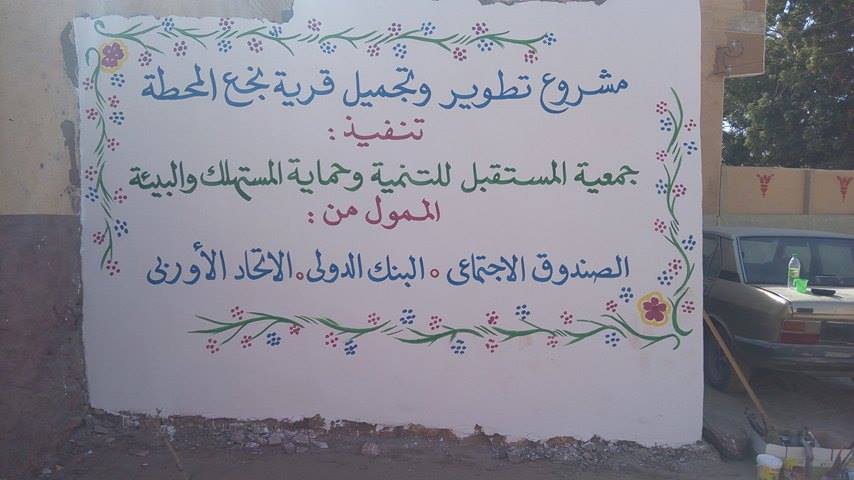 مشروع تطوير وتجميل قرية نجع المحطة
تنفيذ :
جمعية المستقبل للتنمية وحماية المستهلك والبيئة
الممول من :
الصندوق الاجتماعى • البنك الدولى • الاتحاد الأوربى